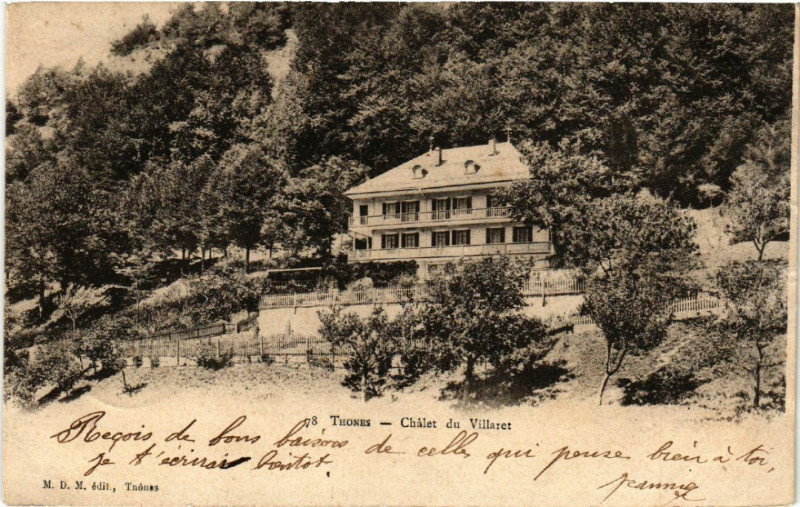 78 THONES — Châlet du Villaret
Reçois de bons baisers de celle qui pense bien à toi,
je t'écrirai bientot.
Jeanne
M. D. M. édit., Thônes